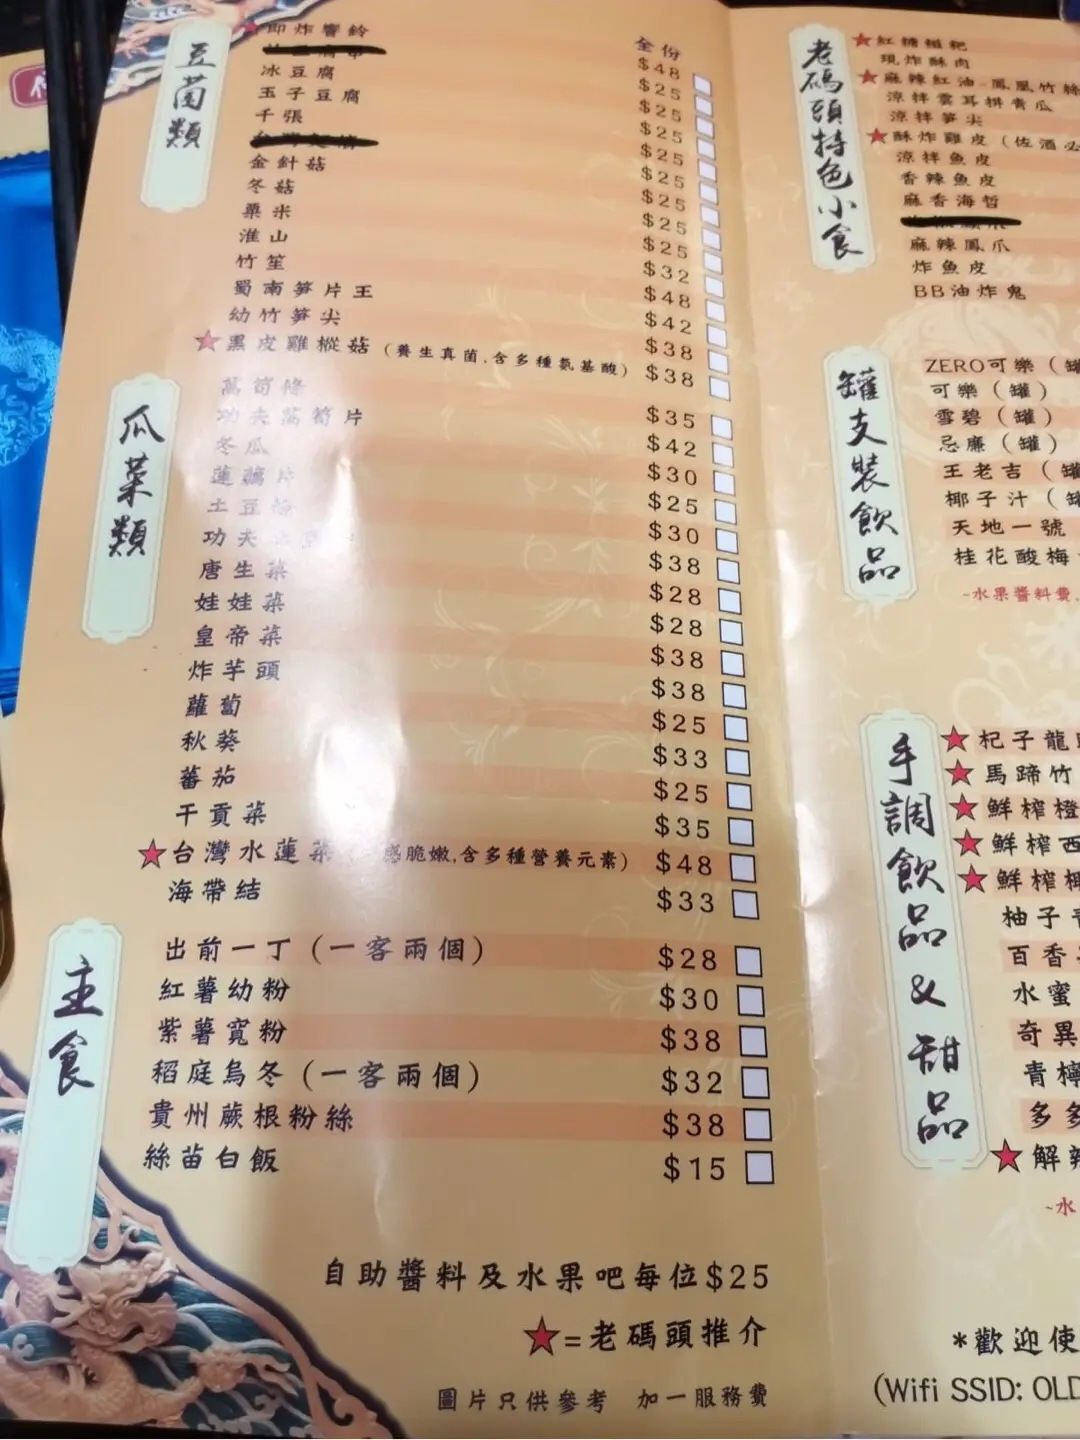 豆菌類
全份
★即炸響鈴 $48
$25
冰豆腐 $25
玉子豆腐 $25
千張 $25
$25
金針菇 $25
冬菇 $25
粟米 $25
淮山 $32
竹笙 $48
蜀南筍片王 $42
幼竹筍尖 $38
★黑皮雞樅菇 (養生真菌,含多種氨基酸) $38
瓜菜類
萵筍條 $35
功夫萵筍片 $42
冬瓜 $30
蓮藕片 $25
土豆 $30
功夫 $38
唐生菜 $28
娃娃菜 $28
皇帝菜 $38
炸芋頭 $38
蘿蔔 $25
秋葵 $33
蕃茄 $25
干貢菜 $35
★台灣水蓮菜 感脆嫩,含多種營養元素) $48
海帶結 $33
主食
出前一丁 (一客兩個) $28
紅薯幼粉 $30
紫薯寬粉 $38
稻庭烏冬 (一客兩個) $32
貴州蕨根粉絲 $38
絲苗白飯 $15
自助醬料及水果吧每位$25
★=老碼頭推介
圖片只供參考 加一服務費
老碼頭特色小食
★紅糖糍粑
現炸酥肉
★麻辣紅油-鳳凰竹絲
涼拌雲耳拼青瓜
涼拌筍尖
★酥炸雞皮 (佐酒必
涼拌魚皮
香辣魚皮
麻香海哲
麻辣鳳爪
炸魚皮
BB油炸鬼
罐支裝飲品
ZERO可樂 (罐
可樂 (罐)
雪碧 (罐)
忌廉 (罐)
王老吉 (罐
椰子汁 (罐
天地一號
桂花酸梅
~水果醬料費,
手調飲品 & 甜品
★杞子龍
★馬蹄竹
★鮮榨橙
★鮮榨西
★鮮榨椰
柚子
百香
水蜜
奇異
青檸
多多
★解辣
~水
*歡迎使
(Wifi SSID: OLD